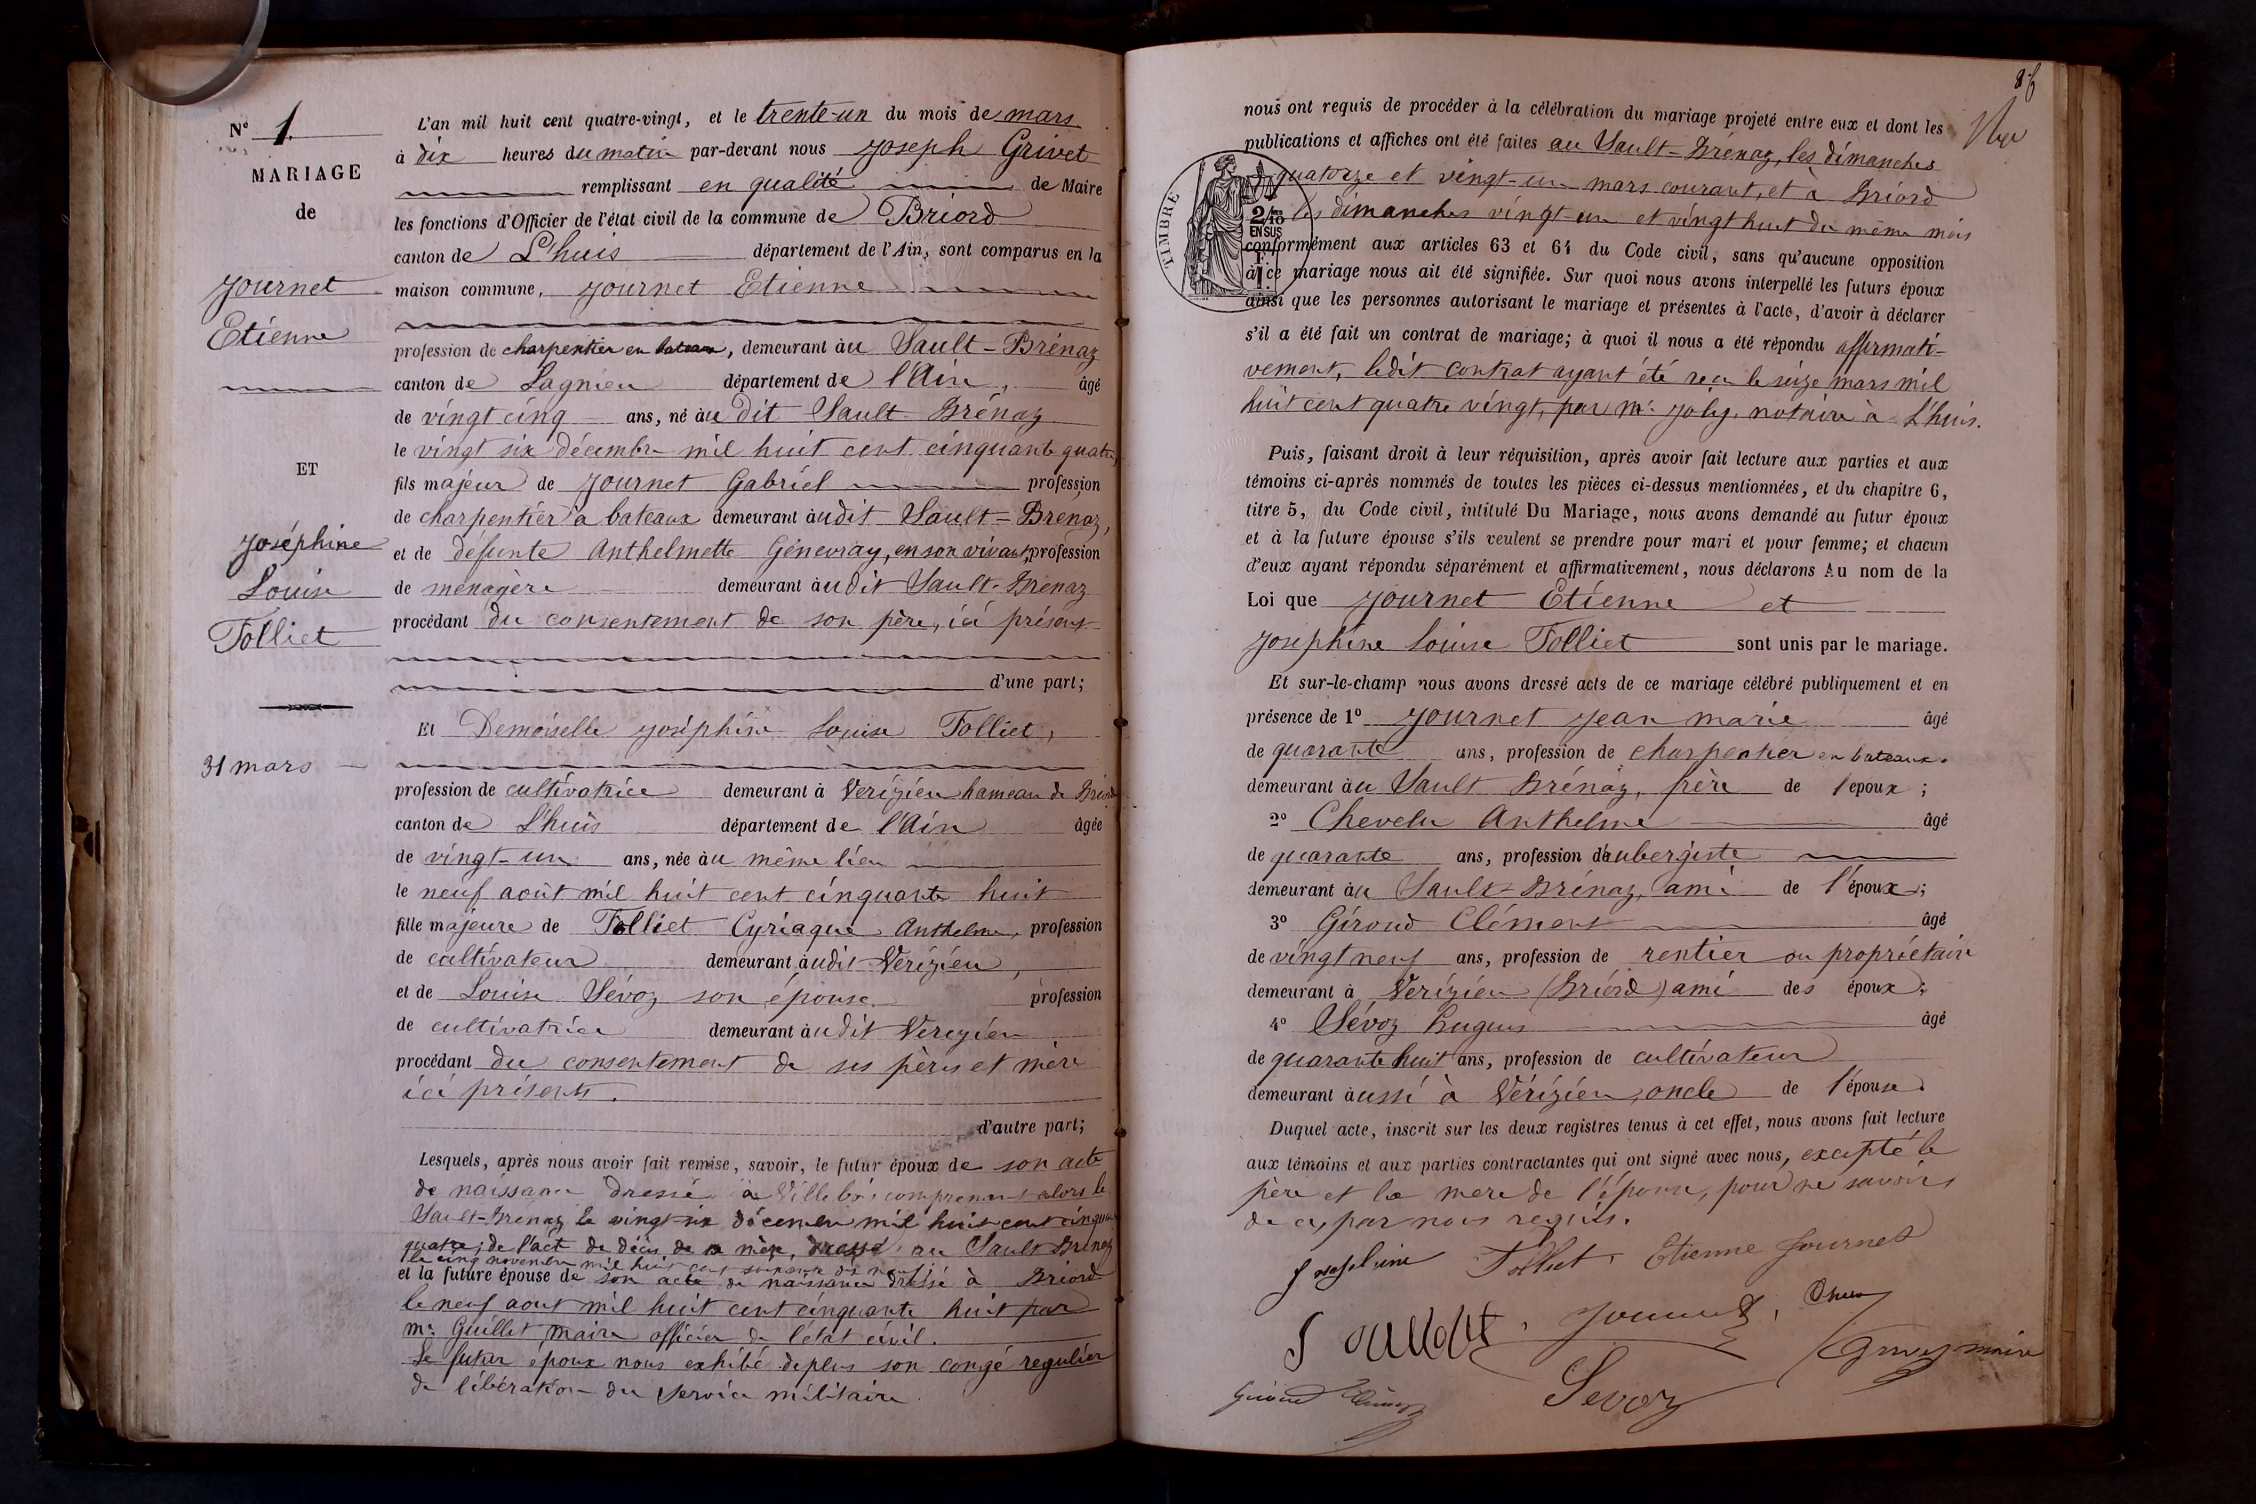 Nº 1.
MARIAGE
de
Journet
Etienne
ET
Joséphine
Louise
Tolliet
31 mars
L'an mil huit cent quatre-vingt, et le trente-un du mois de mars
à dix heures du matin par-devant nous Joseph Grivet
remplissant en qualité de Maire
les fonctions d'Officier de l'état civil de la commune de Briord
canton de L'huis département de l'Ain, sont comparus en la
maison commune, Journet Etienne
profession de charpentier en bateaux, demeurant au Sault-Brénaz
canton de Lagnieu département de l'Ain, âgé
de vingt cinq ans, né au dit Sault-Brénaz
le vingt six décembre mil huit cent cinquante quatre,
fils majeur de Journet Gabriel profession
de charpentier à bateaux demeurant audit Sault-Brenaz,
et de défunte Anthelmette Genevray, en son vivant, profession
de ménagère demeurant audit Sault-Brénaz
procédant du consentement de son père, ici présent
d'une part;
Et Demoiselle Joséphine Louise Tolliet,
profession de cultivatrice demeurant à Verizieu hameau de Briord
canton de L'huis département de l'Ain âgée
de vingt-un ans, née au même lieu
le neuf août mil huit cent cinquante huit
fille majeure de Tolliet Cyriaque Anthelme, profession
de cultivateur demeurant audit Vérizieu,
et de Louise Sévoz son épouse profession
de cultivatrice demeurant audit Verizieu
procédant du consentement de ses père et mère
ici présents.
d'autre part;
Lesquels, après nous avoir fait remise, savoir, le futur époux de son acte
de naissance dressé à Villebois comprenant alors le
Sault-Brenaz le vingt six décembre mil huit cent cinquante
quatre; de l'acte de décès de sa mère, dressé au Sault Brénaz
le cinq novembre mil huit cent soixante dix neuf;
et la future épouse de son acte de naissance dressé à Briord
le neuf août mil huit cent cinquante huit par
Mr. Guillet maire officier de l'état civil.
Le futur époux nous exhibé deplus son congé regulier
de libération du service militaire
86
nous ont requis de procéder à la célébration du mariage projeté entre eux et dont les
publications et affiches ont été faites au Sault-Brénaz, les dimanches
quatorze et vingt-un mars courant, et à Briord
les dimanches vingt-un et vingt huit du même mois
TIMBRE
2/10
EN SUS
conformément aux articles 63 et 64 du Code civil, sans qu'aucune opposition
à ce mariage nous ait été signifiée. Sur quoi nous avons interpellé les futurs époux
ainsi que les personnes autorisant le mariage et présentes à l'acte, d'avoir à déclarer
s'il a été fait un contrat de mariage; à quoi il nous a été répondu affirmati-
vement, ledit contrat ayant été reçu le seize mars mil
huit cent quatre vingt, par Mr. Joly, notaire à L'huis.
Puis, faisant droit à leur réquisition, après avoir fait lecture aux parties et aux
témoins ci-après nommés de toutes les pièces ci-dessus mentionnées, et du chapitre 6,
titre 5, du Code civil, intitulé Du Mariage, nous avons demandé au futur époux
et à la future épouse s'ils veulent se prendre pour mari et pour femme; et chacun
d'eux ayant répondu séparément et affirmativement, nous déclarons Au nom de la
Loi que Journet Etienne et
Joséphine Louise Tolliet sont unis par le mariage.
Et sur-le-champ nous avons dressé acte de ce mariage célébré publiquement et en
présence de 1º Journet Jean marie âgé
de quarante ans, profession de charpentier en bateaux.
demeurant au Sault Brénaz, frère de l'époux;
2º Chevelu Anthelme âgé
de quarante ans, profession d'aubergiste
demeurant au Sault-Brénaz, ami de l'époux;
3º Giroud Clément âgé
de vingt neuf ans, profession de rentier ou propriétaire
demeurant à Verizieu (Briord) ami des époux;
4º Sévoz Hugues âgé
de quarante huit ans, profession de cultivateur
demeurant aussi à Vérizieu, oncle de l'épouse.
Duquel acte, inscrit sur les deux registres tenus à cet effet, nous avons fait lecture
aux témoins et aux parties contractantes qui ont signé avec nous, excepté le
père et la mère de l'épouse, pour ne savoir,
de ce, par nous requis.
Josephine Tolliet, Etienne Journet
Journet,
Grivet maire
Giroud Clément
Sevoz